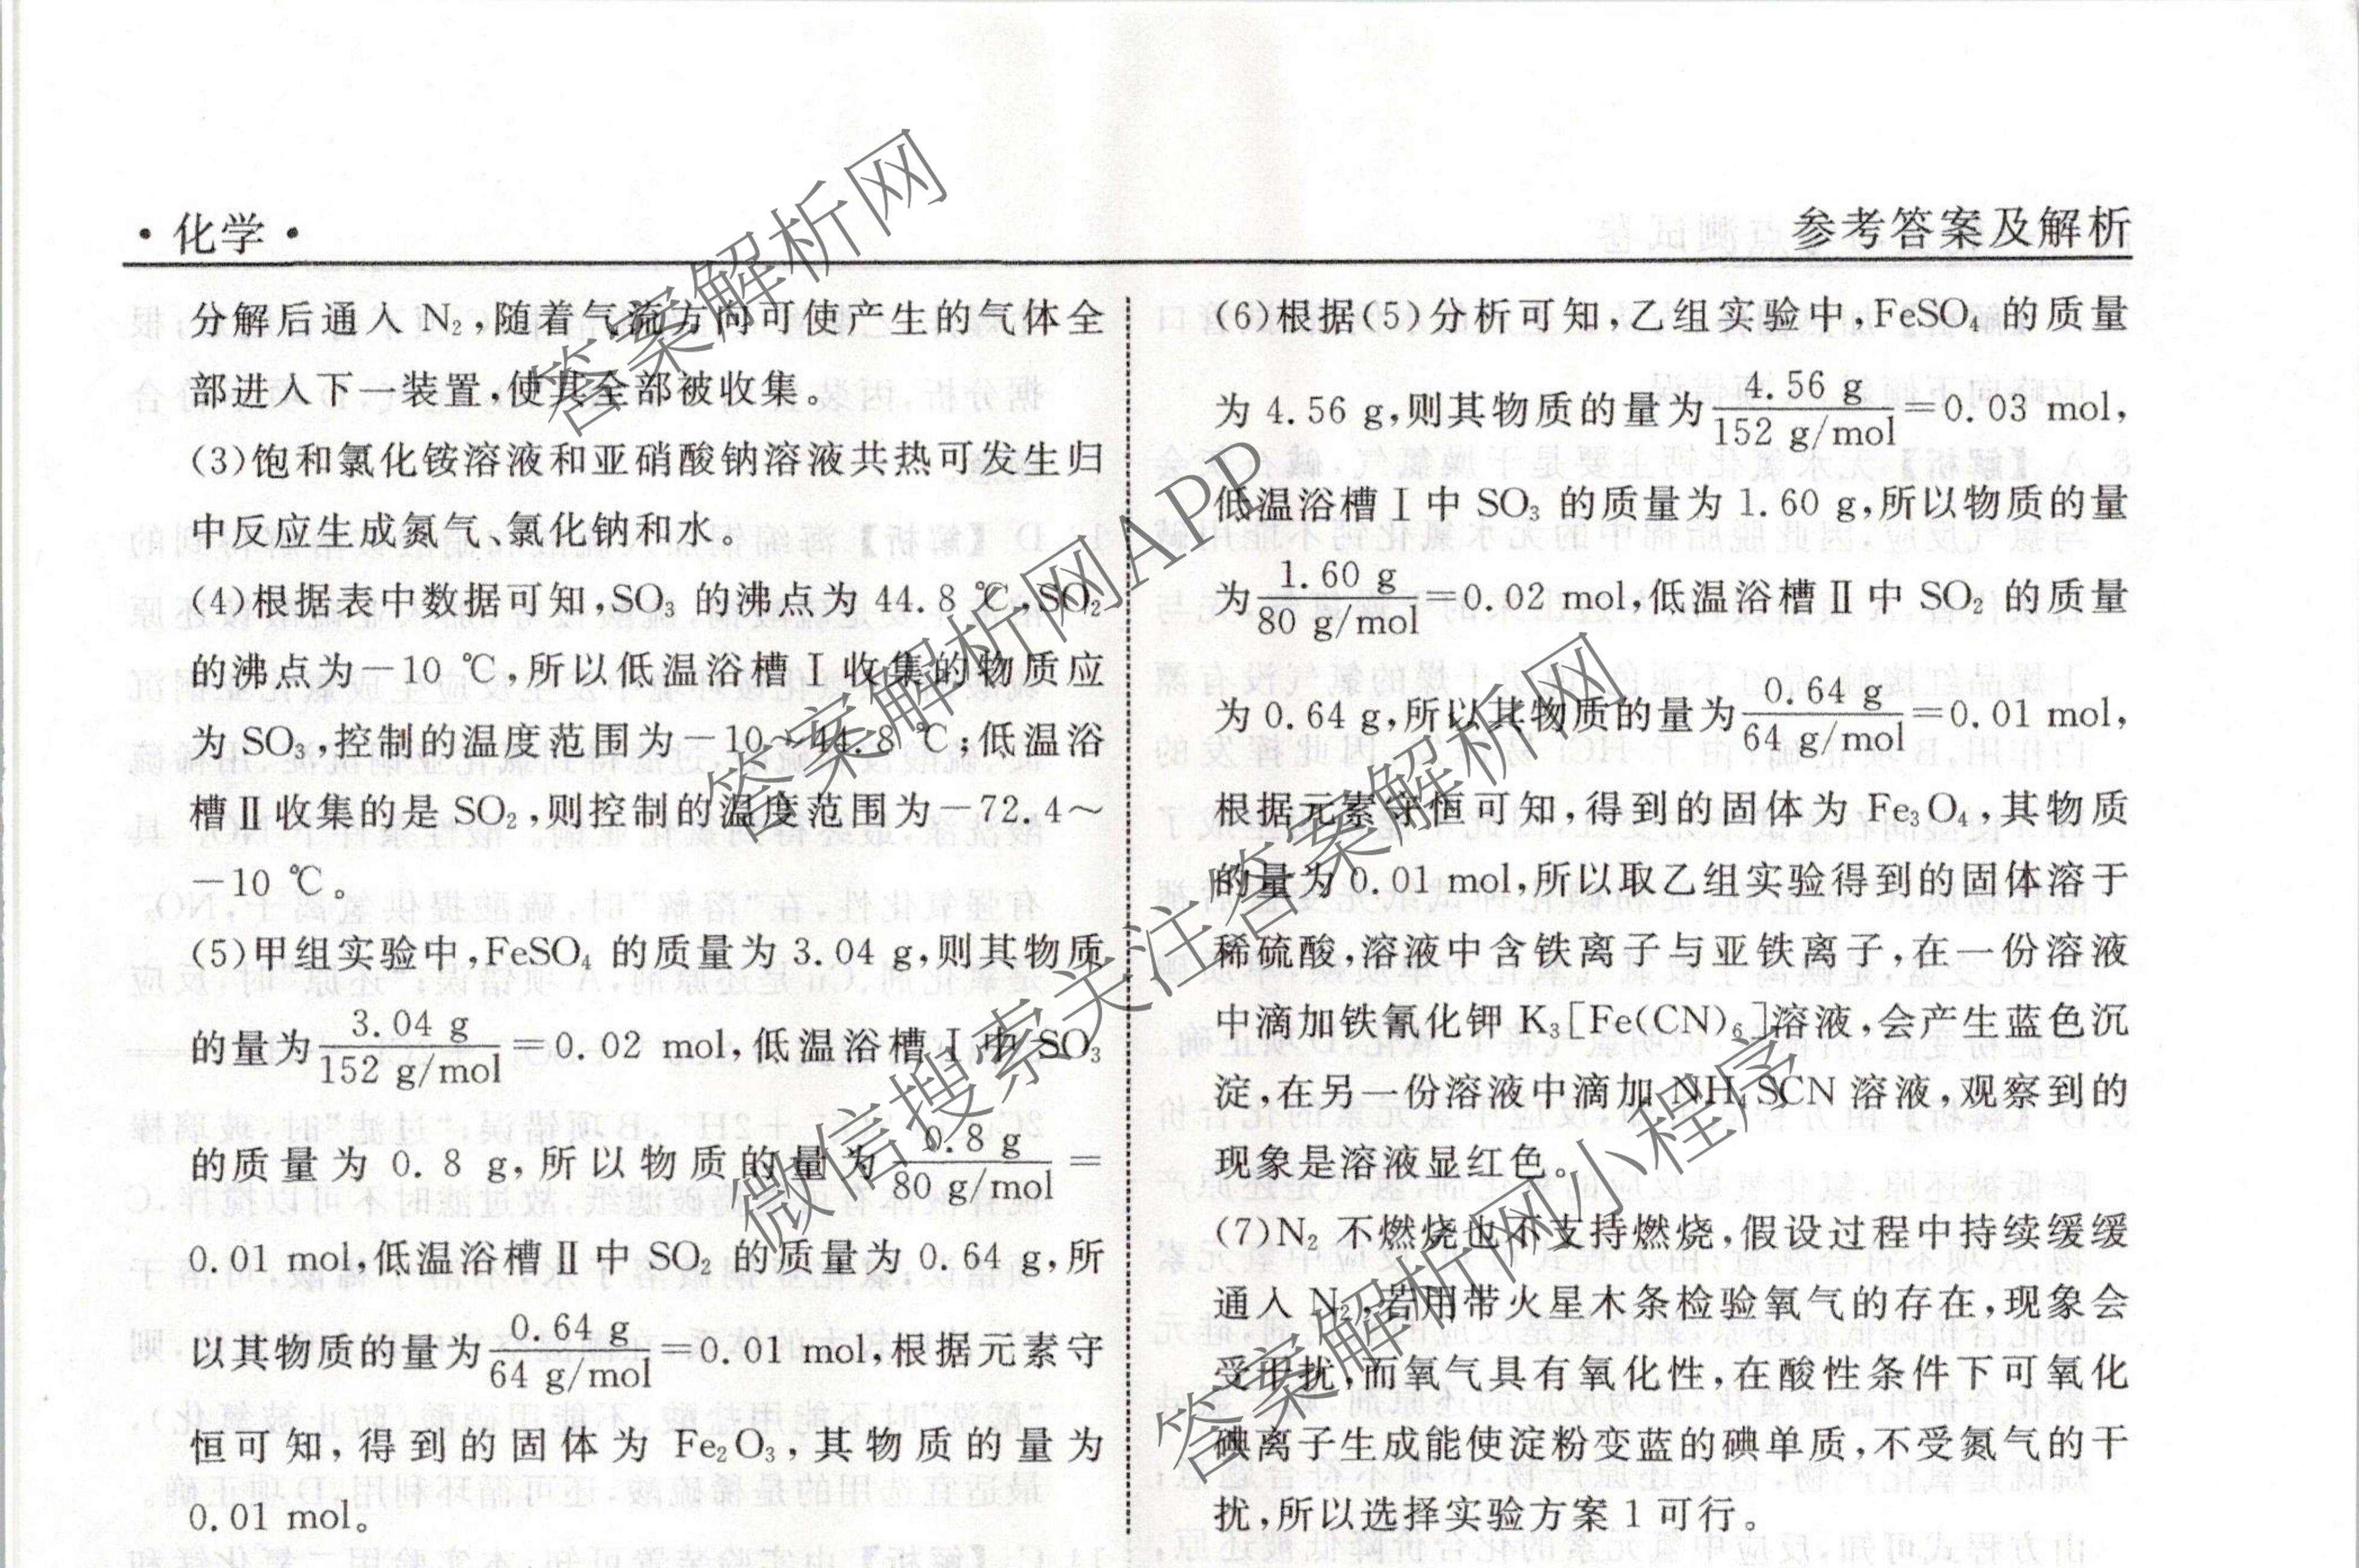 ·化学·
参考答案及解析
分解后通入 N₂,随着气流方向可使产生的气体全
部进入下一装置,使其全部被收集。
(3)饱和氯化铵溶液和亚硝酸钠溶液共热可发生归
中反应生成氮气、氯化钠和水。
(4)根据表中数据可知,SO₃ 的沸点为 44.8 ℃,SO₂
的沸点为-10 ℃,所以低温浴槽Ⅰ收集的物质应
为 SO₃,控制的温度范围为-10~44.8 ℃;低温浴
槽Ⅱ收集的是 SO₂,则控制的温度范围为-72.4~
-10 ℃。
(5)甲组实验中,FeSO₄ 的质量为 3.04 g,则其物质
的量为 3.04 g/152 g/mol =0.02 mol,低温浴槽Ⅰ中 SO₃
的质量为 0.8 g,所以物质的量为 0.8 g/80 g/mol =
0.01 mol,低温浴槽Ⅱ中 SO₂ 的质量为 0.64 g,所
以其物质的量为 0.64 g/64 g/mol =0.01 mol,根据元素守
恒可知,得到的固体为 Fe₂O₃,其物质的量为
0.01 mol。
(6)根据(5)分析可知,乙组实验中,FeSO₄ 的质量
为 4.56 g,则其物质的量为 4.56 g/152 g/mol =0.03 mol,
低温浴槽Ⅰ中 SO₃ 的质量为 1.60 g,所以物质的量
为 1.60 g/80 g/mol =0.02 mol,低温浴槽Ⅱ中 SO₂ 的质量
为 0.64 g,所以其物质的量为 0.64 g/64 g/mol =0.01 mol,
根据元素守恒可知,得到的固体为 Fe₃O₄,其物质
的量为 0.01 mol,所以取乙组实验得到的固体溶于
稀硫酸,溶液中含铁离子与亚铁离子,在一份溶液
中滴加铁氰化钾 K₃[Fe(CN)₆]溶液,会产生蓝色沉
淀,在另一份溶液中滴加 NH₄SCN 溶液,观察到的
现象是溶液显红色。
(7)N₂ 不燃烧也不支持燃烧,假设过程中持续缓缓
通入 N₂,若用带火星木条检验氧气的存在,现象会
受干扰,而氧气具有氧化性,在酸性条件下可氧化
碘离子生成能使淀粉变蓝的碘单质,不受氮气的干
扰,所以选择实验方案 1 可行。
答案解析网
答案解析网APP
微信搜索关注答案解析网
答案解析网小程序